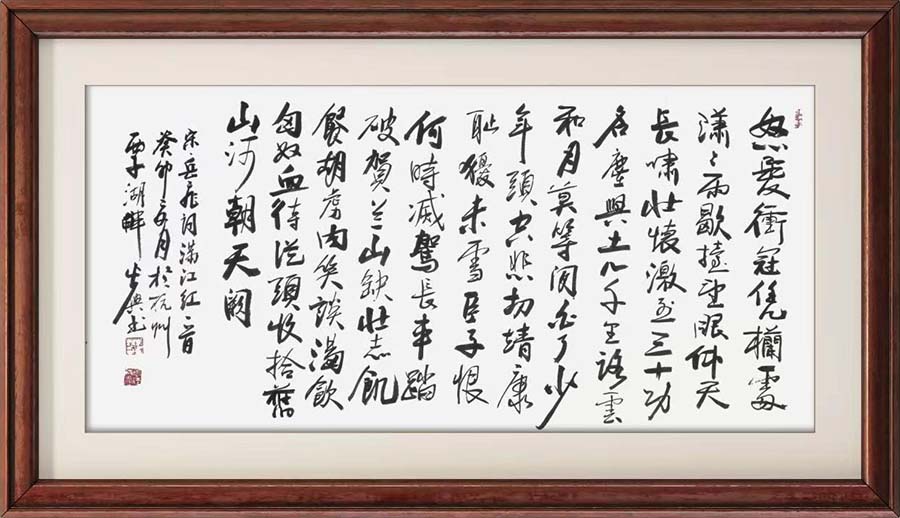 怒髮衝冠凭欄處
瀟々雨歇擡望眼仰天
長嘯壯懷激烈三十功
名塵與土八千里路雲
和月莫等閑白了少
年頭空悲切靖康
耻猶未雪臣子恨
何時滅駕長車踏
破賀兰山缺壯志飢
餐胡虜肉笑談渴飲
匈奴血待從頭收拾舊
山河朝天闕
宋岳飛詞滿江紅一首
癸卯月於杭州
西子湖畔书